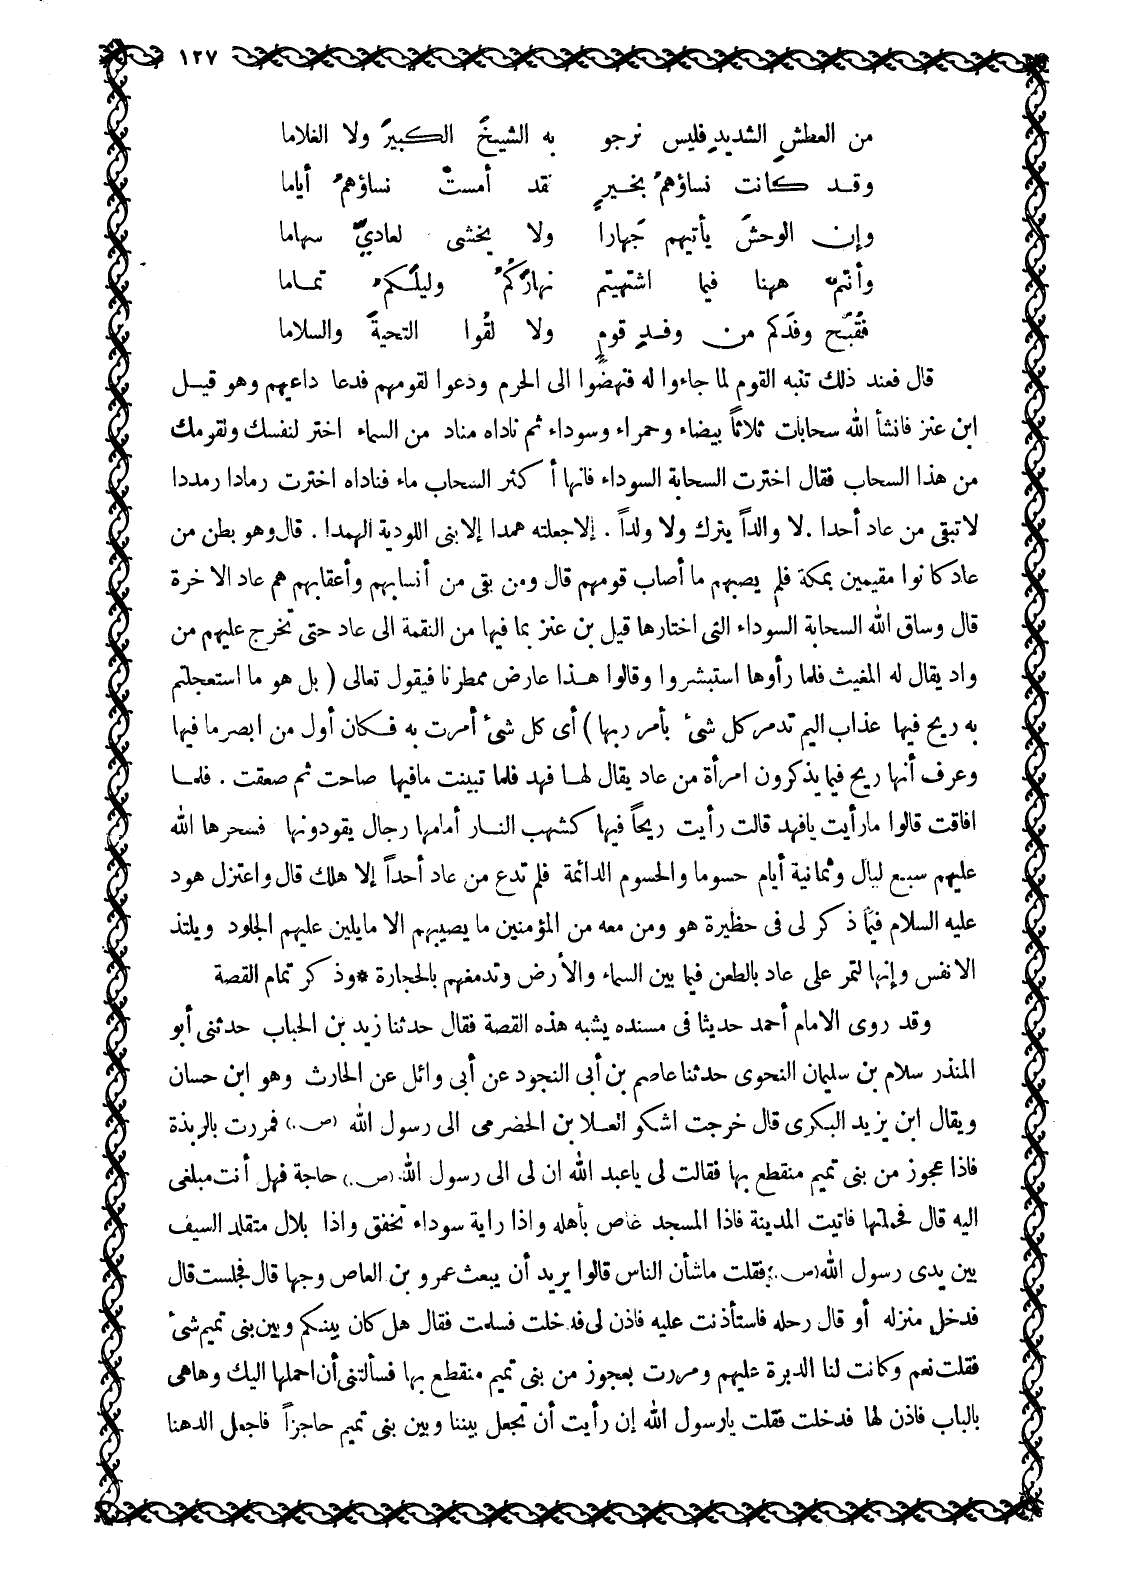 ١٢٧
من العطشِ الشديدِ فليس نرجو به الشيخَ الكبيرَ ولا الغلاما
وقد كانت نساؤهمُ بخيرٍ نقد أمستْ نساؤهمُ أياما
وإن الوحشَ يأتيهم جَهارا ولا يخشى لعاديٍّ سهاما
وأنتمْ ههنا فيما اشتهيتم نهارَكُمُ وليلَكمُ تماما
فقُبّح وفدَكم من وفدِ قومٍ ولا لقُوا التحيةَ والسلاما
قال فعند ذلك تنبه القوم لما جاءوا له فنهضُوا الى الحرم ودعوا لقومهم فدعا داعيهم وهو قيل
ابن عنز فانشأ الله سحابات ثلاثاً بيضاء وحمراء وسوداء ثم ناداه مناد من السماء اختر لنفسك ولقومك
من هذا السحاب فقال اخترت السحابة السوداء فانها أكثر السحاب ماء فناداه اخترت رمادا رمددا
لا تبقى من عاد أحدا . لا والداً يترك ولا ولداً . إلا جعلته همدا إلا بنى اللودية الهمدا . قال وهو بطن من
عاد كانوا مقيمين بمكة فلم يصبهم ما أصاب قومهم قال ومن بقى من أنسابهم وأعقابهم هم عاد الاخرة
قال وساق الله السحابة السوداء التى اختارها قيل بن عنز بما فيها من النقمة الى عاد حتى تخرج عليهم من
واد يقال له المغيث فلما رأوها استبشروا وقالوا هذا عارض ممطرنا فيقول تعالى ( بل هو ما استعجلتم
به ريح فيها عذاب اليم تدمر كل شئ بأمر ربها ) أى كل شئ أمرت به فكان أول من ابصر ما فيها
وعرف أنها ريح فيما يذكرون امرأة من عاد يقال لها فهد فلما تبينت مافيها صاحت ثم صعقت . فلما
افاقت قالوا مارأيت يافهد قالت رأيت ريحاً فيها كشهب النار أمامها رجال يقودونها فسحرها الله
عليهم سبع ليال وثمانية أيام حسوما والحسوم الدائمة فلم تدع من عاد أحداً إلا هلك قال واعتزل هود
عليه السلام فيما ذكر لى فى حظيرة هو ومن معه من المؤمنين ما يصيبهم الا مايلين عليهم الجلود ويلتذ
الانفس وإنها لتمر على عاد بالطعن فيما بين السماء والأرض وتدمغهم بالحجارة *وذكر تمام القصة
وقد روى الامام أحمد حديثا فى مسنده يشبه هذه القصة فقال حدثنا زيد بن الحباب حدثنى أبو
المنذر سلام بن سليمان النحوى حدثنا عاصم بن أبى النجود عن أبى وائل عن الحارث وهو ابن حسان
ويقال ابن يزيد البكرى قال خرجت اشكو العلا بن الحضرمى الى رسول الله (ص.) فمررت بالربذة
فاذا عجوز من بنى تميم منقطع بها فقالت لى ياعبد الله ان لى الى رسول الله (ص.) حاجة فهل أنت مبلغى
اليه قال فحملتها فاتيت المدينة فاذا المسجد غاص بأهله واذا راية سوداء تخفق واذا بلال متقلد السيف
بين يدى رسول الله (ص.) فقلت ماشأن الناس قالوا يريد أن يبعث عمرو بن العاص وجها قال فجلست قال
فدخل منزله أو قال رحله فاستأذنت عليه فاذن لى فدخلت فسلمت فقال هل كان بينكم وبين بنى تميم شئ
فقلت نعم وكانت لنا الدبرة عليهم ومررت بعجوز من بنى تميم منقطع بها فسألتنى أن احملها اليك وهاهى
بالباب فاذن لها فدخلت فقلت يارسول الله إن رأيت أن تجعل بيننا وبين بنى تميم حاجزاً فاجعل الدهنا